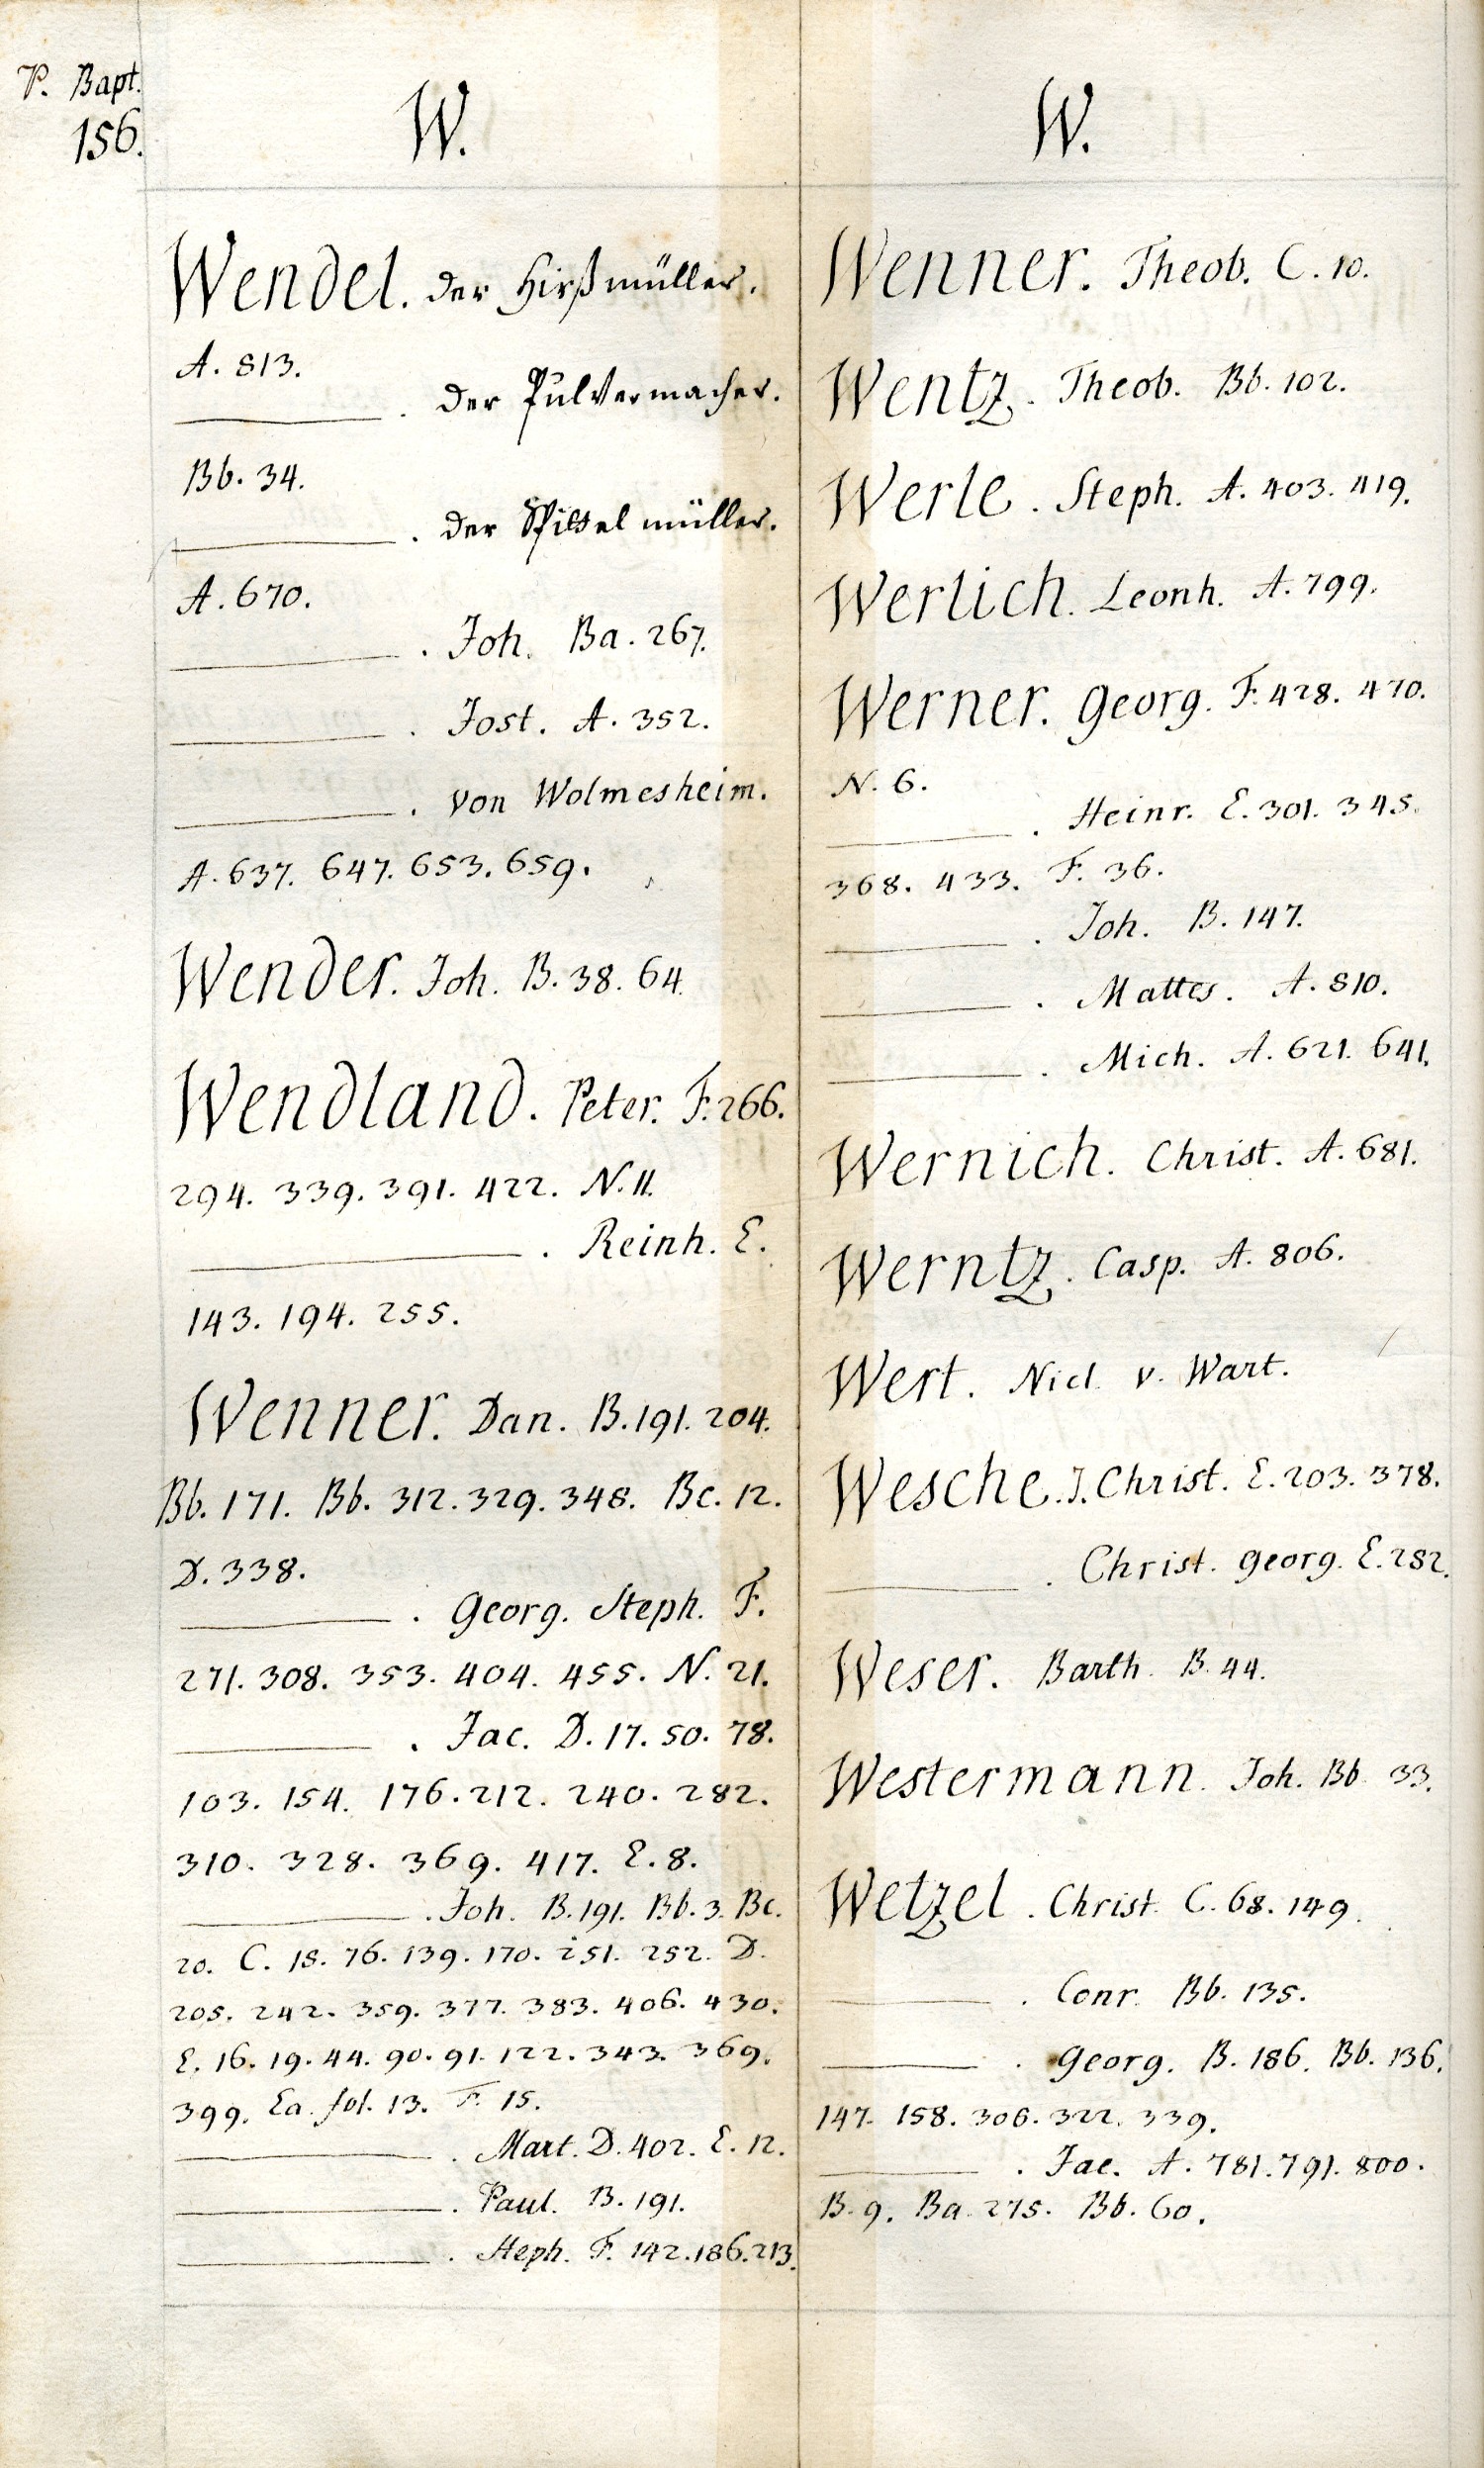 P. Bapt.
156.
W.
Wendel. der Hirßmüller.
A. 813.
. der Pulvermacher.
Bb. 34.
. der Spittelmüller.
A. 670.
. Joh. Ba. 267.
. Jost. A. 352.
. von Wolmesheim.
A. 637. 647. 653. 659.
Wender. Joh. B. 38. 64.
Wendland. Peter. F. 266.
294. 339. 391. 422. N. 11.
. Reinh. E.
143. 194. 255.
Wenner. Dan. B. 191. 204.
Bb. 171. Bb. 312. 329. 348. Bc. 12.
D. 338.
. Georg. Steph. F.
271. 308. 353. 404. 455. N. 21.
. Jac. D. 17. 50. 78.
103. 154. 176. 212. 240. 282.
310. 328. 369. 417. E. 8.
. Joh. B. 191. Bb. 3. Bc.
20. C. 15. 76. 139. 170. 251. 252. D.
205. 242. 359. 377. 383. 406. 430.
E. 16. 19. 44. 90. 91. 122. 343. 369.
399. Ea. fol. 13. F. 15.
. Mart. D. 402. E. 12.
. Paul. B. 191.
. Steph. F. 142. 186. 213.
W.
Wenner. Theob. C. 10.
Wentz. Theob. Bb. 102.
Werle. Steph. A. 403. 419.
Werlich. Leonh. A. 799.
Werner. Georg. F. 428. 470.
N. 6.
. Heinr. E. 301. 345.
368. 433. F. 36.
. Joh. B. 147.
. Mattes. A. 810.
. Mich. A. 621. 641.
Wernich. Christ. A. 681.
Werntz. Casp. A. 806.
Wert. Nicl. v. Wart.
Wesche. J. Christ. E. 203. 378.
. Christ. Georg. E. 282.
Weser. Barth. B. 44.
Westermann. Joh. Bb. 33.
Wetzel. Christ. C. 68. 149.
. Conr. Bb. 135.
. Georg. B. 186. Bb. 136.
147. 158. 306. 322. 339.
. Jac. A. 781. 791. 800.
B. 9. Ba. 275. Bb. 60.